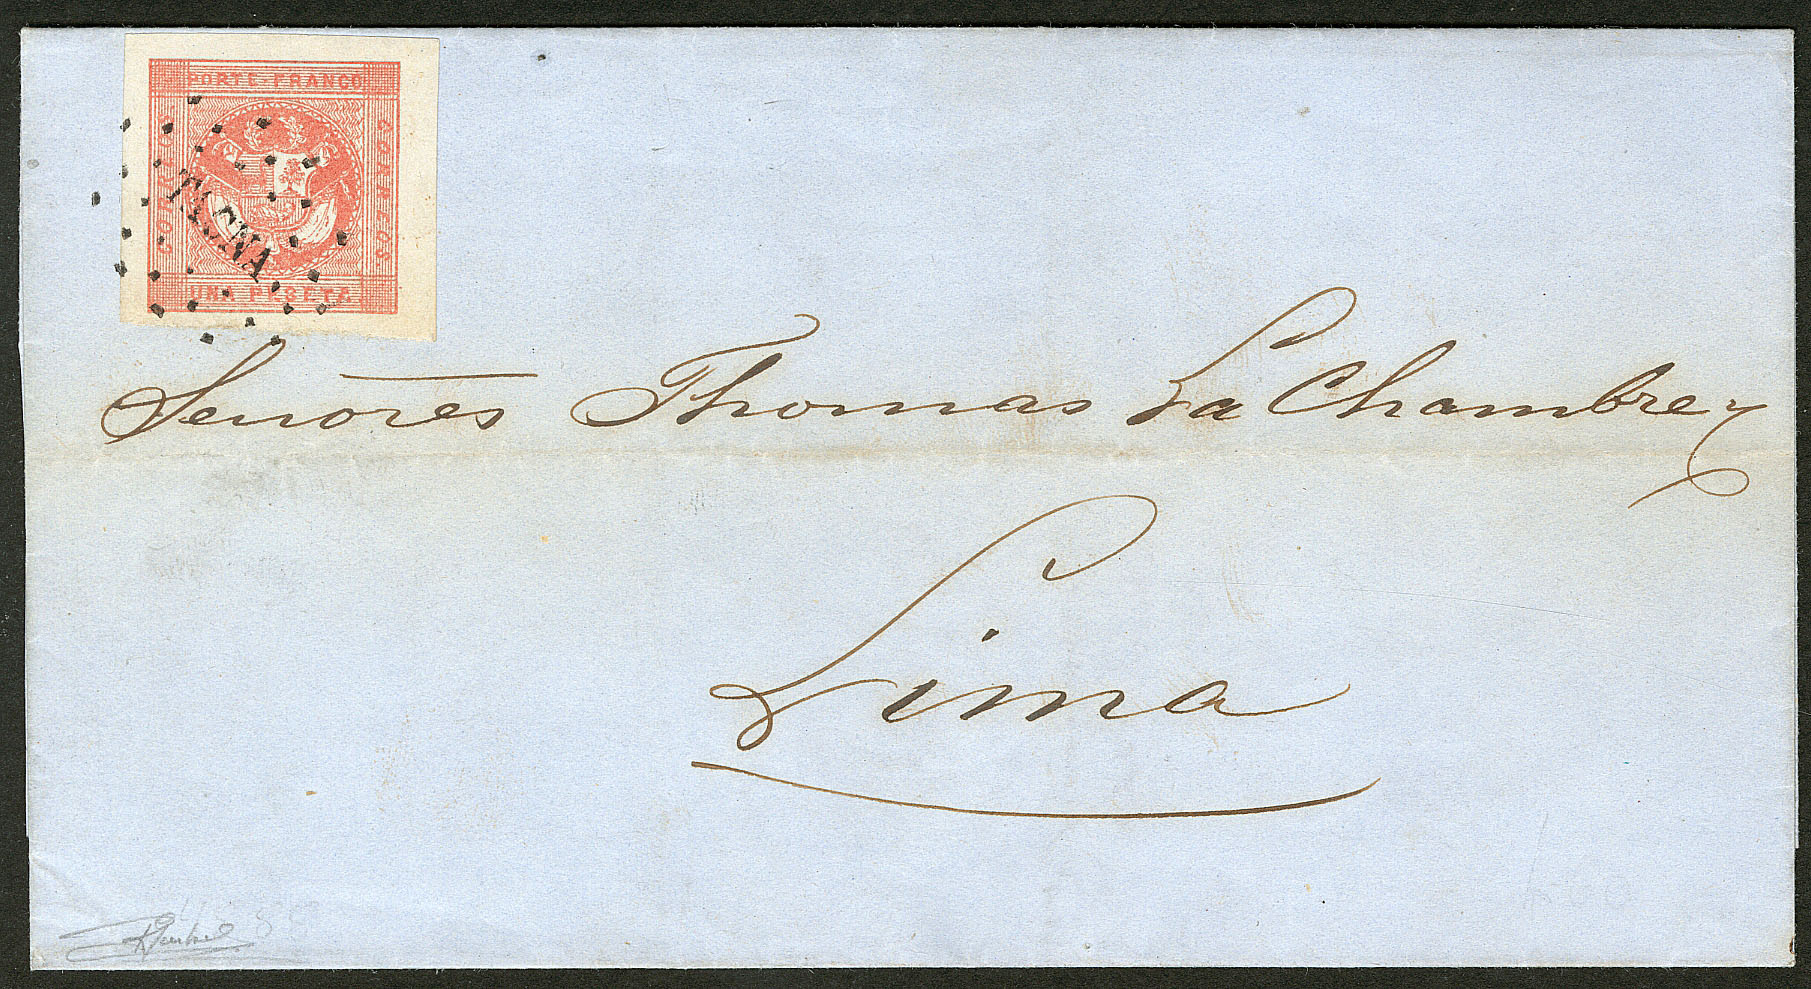 PORTE FRANCO
CORREOS
CORREOS
UNA PESETA
TACNA
Señores Thomas La Chambre y
Lima